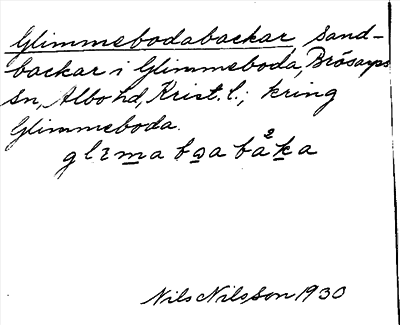 Glimmebodabackar, Sand-
backar i Glimmeboda, Brösarps
Sn, Albo hd, Krist. l.; kring
Glimmeboda.
Nils Nilsson 1930